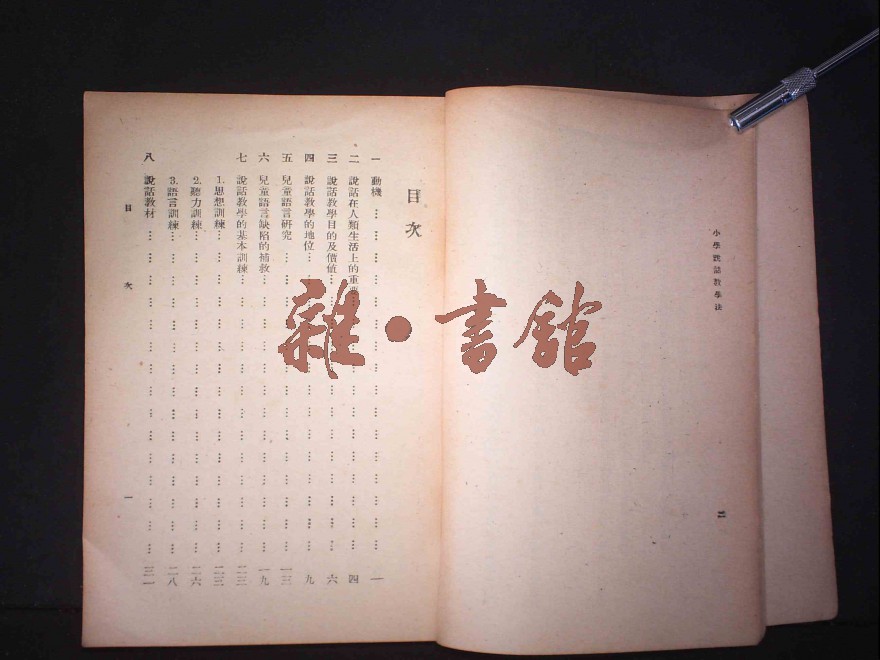 小學說話敎學法
目次
一 動機 一
二 說話在人類生活上的重要 四
三 說話敎學目的及價值 六
四 說話敎學的地位 九
五 兒童語言研究 一三
六 兒童語言缺陷的補救 一九
七 說話敎學的基本訓練 二三
1. 思想訓練 二三
2. 聽力訓練 二六
3. 語言訓練 二八
八 說話敎材 三一
目次 一
雜・書館